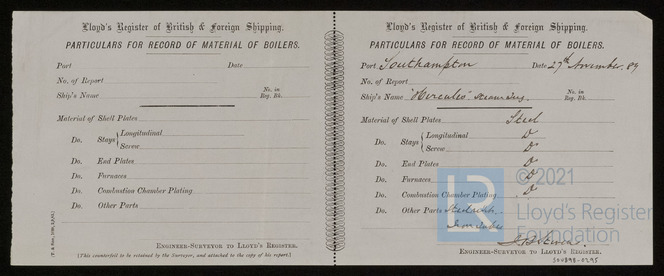 Lloyd's Register of British & Foreign Shipping.
PARTICULARS FOR RECORD OF MATERIAL OF BOILERS.
Port Date
No. of Report
Ship's Name No. in Reg. Bk.
Material of Shell Plates
Do. Stays { Longitudinal
Screw
Do. End Plates
Do. Furnaces
Do. Combustion Chamber Plating
Do. Other Parts
ENGINEER-SURVEYOR TO LLOYD'S REGISTER.
(This counterfoil to be retained by the Surveyor, and attached to the copy of his report.)
Lloyd's Register of British & Foreign Shipping.
PARTICULARS FOR RECORD OF MATERIAL OF BOILERS.
Port Southampton Date 27th November 89
No. of Report
Ship's Name "Hercules" No. in Reg. Bk.
Material of Shell Plates Steel
Do. Stays { Longitudinal Do
Screw Do
Do. End Plates Do
Do. Furnaces Do
Do. Combustion Chamber Plating Do
Do. Other Parts
Iron tubes
ENGINEER-SURVEYOR TO LLOYD'S REGISTER.
SOU898-0295
LR
© 2021
Lloyd's Register
Foundation